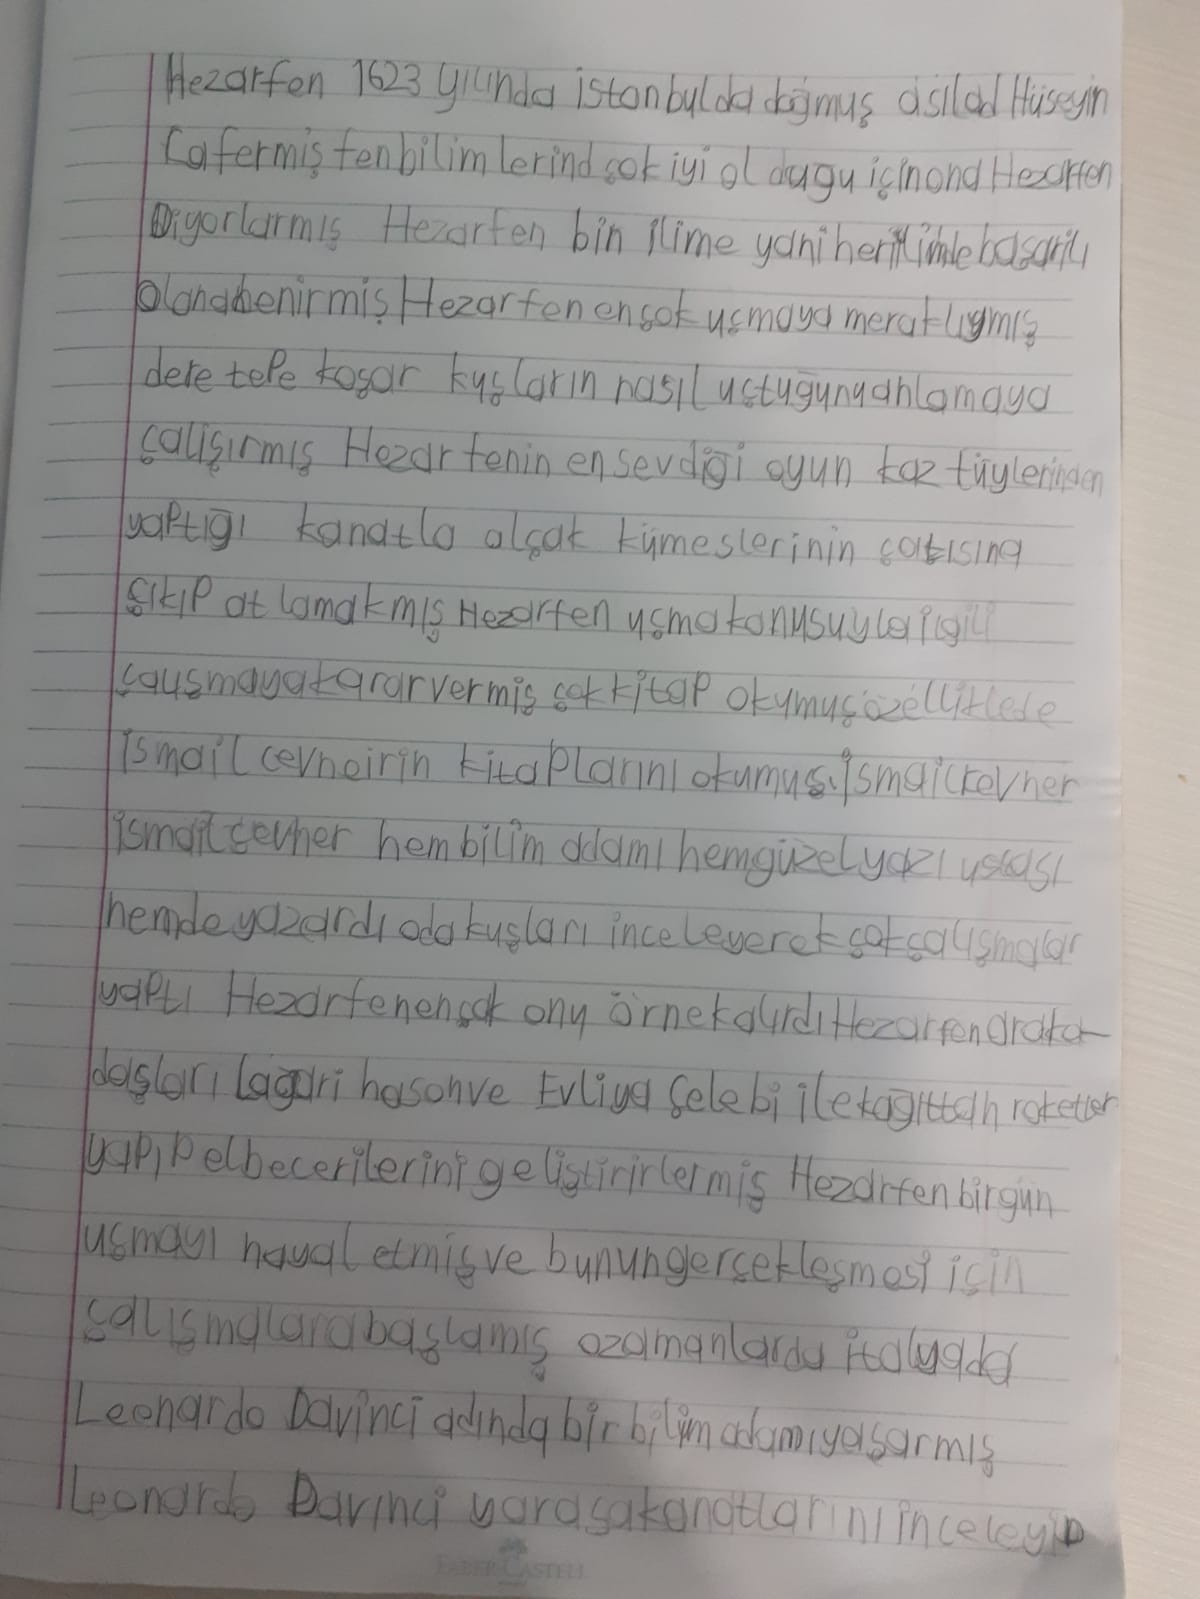 Hezarfen 1623 yılında istonbulda doğmuş asılad Hüseyin
Cafermiş fenbilimlerind çok iyi olduğu içinond Hezarfen
Diyorlarmış Hezarfen bin ilime yani her ilimle basarılı
olana benirmiş Hezarfen ençok uçmaya meraklıymış
dere tepe koşar kuşların nasıl uçtuğunu anlamaya
çalışırmış Hezarfenin en sevdiği oyun kaz tüylerinden
yaptığı kanatla alçak kümeslerinin çatısına
çıkıp atlamakmış Hezarfen uçma konusuyla ilgili
çalışmaya karar vermiş çok kitap okumuş özelliklede
ismail cevheirin kitaplarını okumuş. İsmail cevher
ismail cevher hem bilim adamı hem güzel yazı ustası
hemde yazardı oda kuşları inceleyerek çok çalışmalar
yaptı Hezarfen ençok onu örnek alırdı Hezarfen araka-
daşları lagari hasan ve Evliya çelebi ile kağıttan roketler
yapıp el becerilerini geliştirirlermiş Hezarfen birgün
uçmayı hayal etmiş ve bunun gerçekleşmesi için
çalışmalara başlamış ozamanlarda italyada
Leonardo Davinci adında bir bilim adamı yaşarmış
Leonardo Davinci yarasa kanatlarını inceleyip
FABER-CASTELL